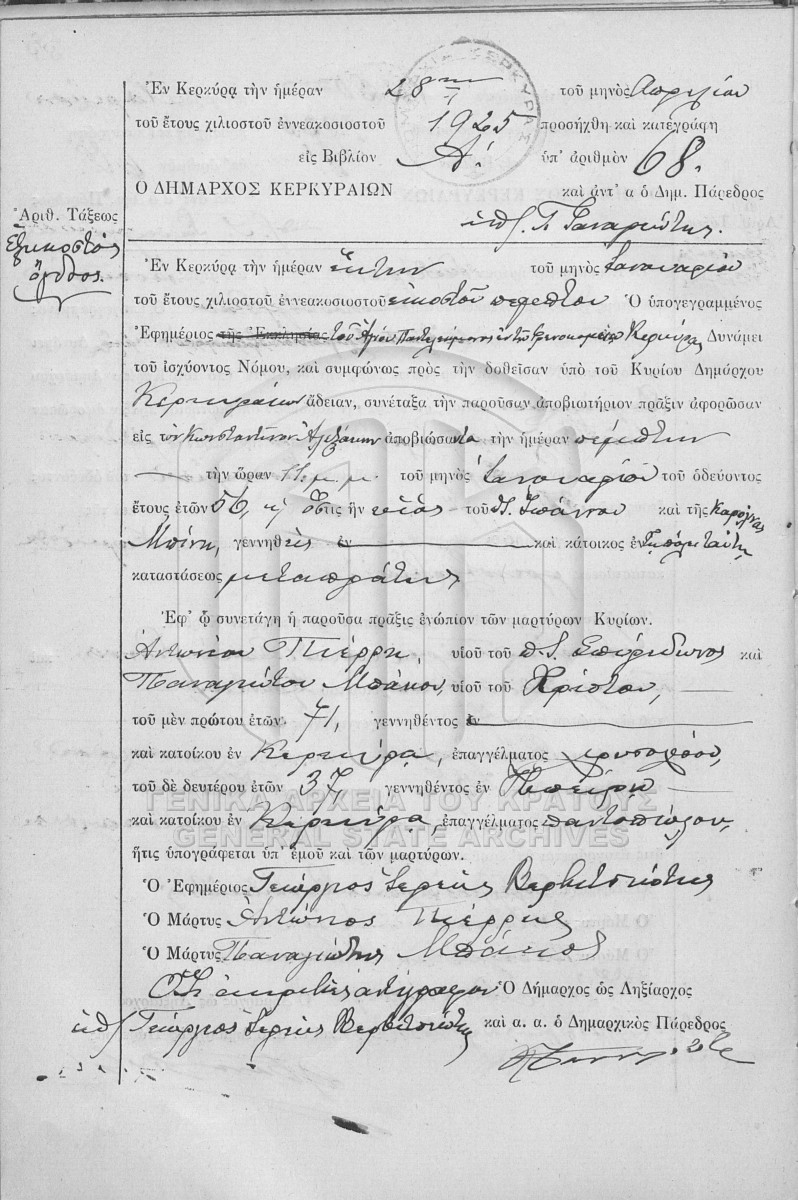 Ἐν Κερκύρᾳ τὴν ἡμέραν 28ην τοῦ μηνὸς Απριλίου
τοῦ ἔτους χιλιοστοῦ ἐννεακοσιοστοῦ 1925 προσήχθη καὶ κατεγράφη
εἰς Βιβλίον Α΄. ὑπ' ἀριθμὸν 68.
Ο ΔΗΜΑΡΧΟΣ ΚΕΡΚΥΡΑΙΩΝ καὶ ἀντ' α ὁ Δημ. Πάρεδρος
Ἀριθ. Τάξεως
Ἑξηκοστὸς
ὄγδοος.
Ἐν Κερκύρᾳ τὴν ἡμέραν ἕκτην τοῦ μηνὸς Ιανουαρίου
τοῦ ἔτους χιλιοστοῦ ἐννεακοσιοστοῦ εἰκοστοῦ πέμπτου Ὁ ὑπογεγραμμένος
Ἐφημέριος τῆς Ἐκκλησίας τοῦ Ἁγίου Παντελεήμονος ἐν τῷ Φρενοκομείῳ Κερκύρας Δυνάμει
τοῦ ἰσχύοντος Νόμου, καὶ συμφώνως πρὸς τὴν δοθεῖσαν ὑπὸ τοῦ Κυρίου Δημάρχου
Κερκυραίων ἄδειαν, συνέταξα τὴν παροῦσαν ἀποβιωτήριον πρᾶξιν ἀφορῶσαν
εἰς τὸν Κωνσταντῖνον Ἀλεξάκην ἀποβιώσαντα τὴν ἡμέραν πέμπτην
τὴν ὥραν 11 μ. μ. τοῦ μηνὸς Ιανουαρίου τοῦ ὁδεύοντος
ἔτους ἐτῶν 56, ὅστις ἦν υἱὸς τοῦ Ἰωάννου καὶ τῆς
γεννηθεὶς ἐν καὶ κάτοικος ἐν
καταστάσεως μεταπράτης
Ἐφ' ᾧ συνετάγη ἡ παροῦσα πρᾶξις ἐνώπιον τῶν μαρτύρων Κυρίων.
Ἀντωνίου Πιέρρη, υἱοῦ τοῦ π. Σπυρίδωνος καὶ
Παναγιώτου Μπάκου, υἱοῦ τοῦ Χρίστου,
τοῦ μὲν πρώτου ἐτῶν 71, γεννηθέντος ἐν
καὶ κατοίκου ἐν Κερκύρᾳ, ἐπαγγέλματος χρυσοχόου,
τοῦ δὲ δευτέρου ἐτῶν 37, γεννηθέντος ἐν Ἠπείρῳ
καὶ κατοίκου ἐν Κερκύρᾳ, ἐπαγγέλματος παντοπώλου,
ἥτις ὑπογράφεται ὑπ' ἐμοῦ καὶ τῶν μαρτύρων.
Ὁ Ἐφημέριος Γεώργιος Ἱερεὺς Βερβιτσιώτης
Ὁ Μάρτυς Ἀντώνιος Πιέρρης
Ὁ Μάρτυς Παναγιώτης Μπάκος
Ὅτι ἀκριβὲς ἀντίγραφον Ὁ Δήμαρχος ὡς Ληξίαρχος
Γεώργιος Ἱερεὺς Βερβιτσιώτης καὶ α. α. ὁ Δημαρχικὸς Πάρεδρος
ΓΕΝΙΚΑ ΑΡΧΕΙΑ ΤΟΥ ΚΡΑΤΟΥΣ
GENERAL STATE ARCHIVES